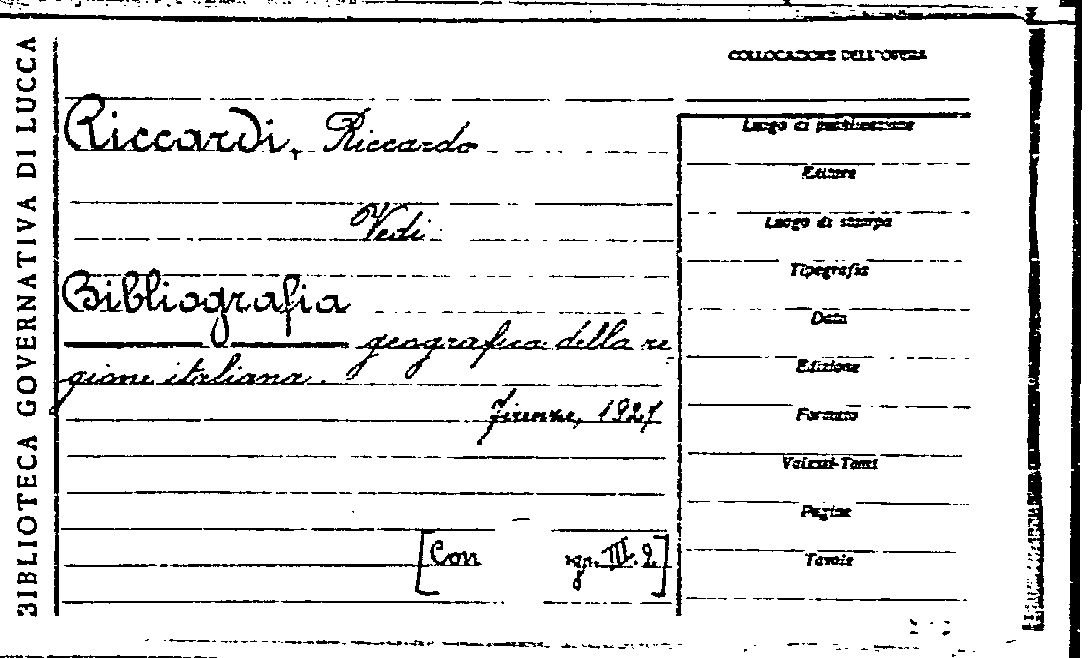 BIBLIOTECA GOVERNATIVA DI LUCCA
COLLOCAZIONE DELL'OPERA
Riccardi, Riccardo
Vedi
Bibliografia
geografica della re
gione italiana.
Firenze, 1927
[Con III. 2]
Luogo di pubblicazione
Editore
Luogo di stampa
Tipografia
Data
Edizione
Formato
Volumi-Tomi
Pagine
Tavole